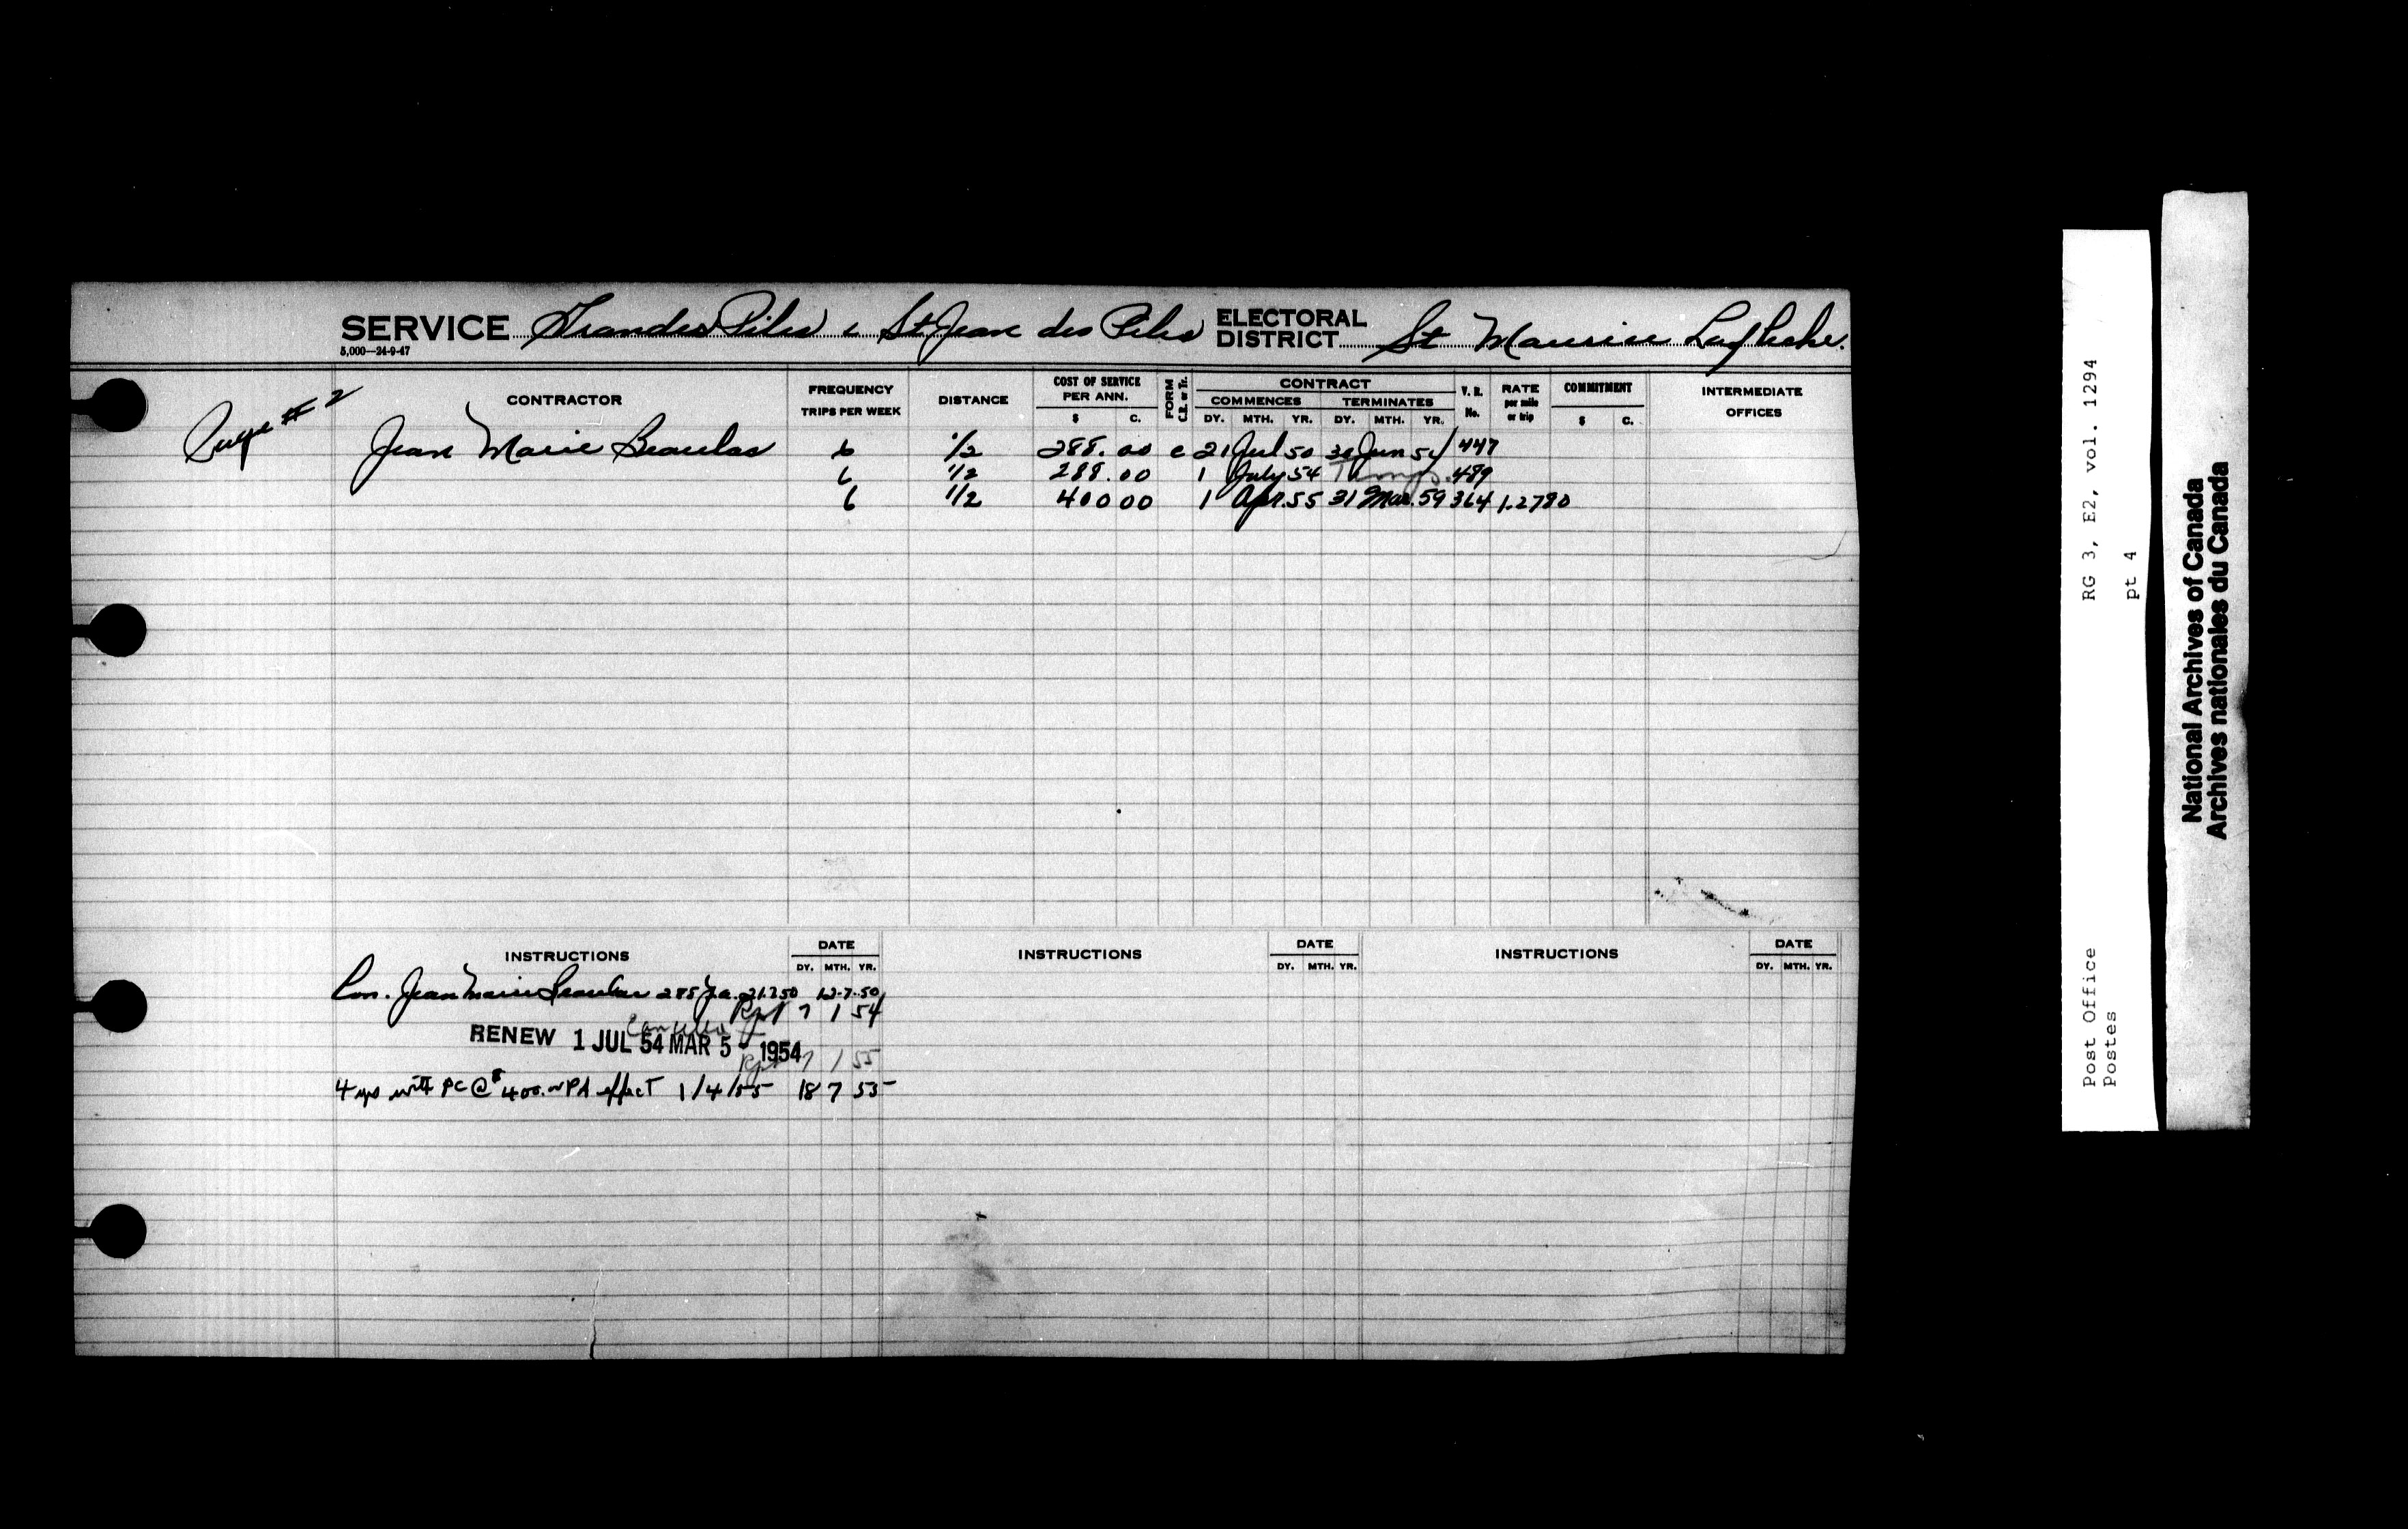 SERVICE Grandes Piles & St Jean des Piles ELECTORAL DISTRICT St Maurice Lafleche.
5,000—24-9-47
Page # 2
CONTRACTOR FREQUENCY TRIPS PER WEEK DISTANCE COST OF SERVICE PER ANN. $ C. FORM C.R. or Tr. CONTRACT COMMENCES DY. MTH. YR. TERMINATES DY. MTH. YR. V. R. No. RATE per mile or trip COMMITMENT $ C. INTERMEDIATE OFFICES
Jean Marie Beaulac 6 1/2 288.00 c 21 Jul 50 30 Jun 54 447
6 1/2 288.00 1 July 54 489
6 1/2 400 00 1 Apr. 55 31 Mar. 59 364 1.2780
INSTRUCTIONS DATE DY. MTH. YR. INSTRUCTIONS DATE DY. MTH. YR. INSTRUCTIONS DATE DY. MTH. YR.
Con. Jean Marie Beaulac 288 p.a. 21.7.50 12-7-50
Rpt 7 1 54
Cancelled
RENEW 1 JUL 54 MAR 5 - 1954
Rpt 7 1 55
4 yrs with PC @ $400.00 PA effect 1/4/55 18 7 55
Post Office RG 3, E2, vol. 1294
Postes pt 4
National Archives of Canada
Archives nationales du Canada